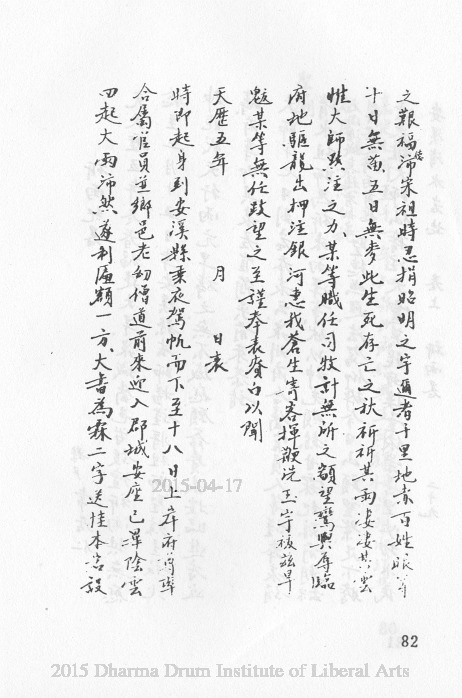 之艱福沛宋祖時忍捐昭明之宇邇者千里地赤百姓眼穿
十日無苗五日無麥此生死存亡之秋祈祈其雨淒淒其雲
惟大師默注之力某等職任司牧計無所之顒望鸞輿辱臨
府地驅龍出押注銀河惠我蒼生嵵客揮鞭洗玉宇祓茲旱
魃某等無任跂望之至謹奉表賫白以聞
天歷五年 月 日表
時即起身到安溪縣乘夜駕帆而下至十八日上岸府尊率
合屬官員並鄉邑老幼僧道前來迎入郡城安座已畢陰雲
四起大雨沛然遂制匾額一方大書為霖二字送挂本宮設
2015-04-17
82
2015 Dharma Drum Institute of Liberal Arts